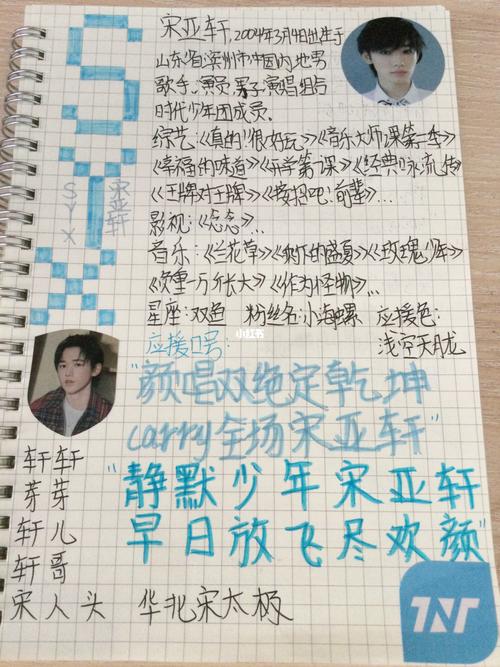 宋亚轩,2004年3月4日出生于
山东省滨州市中国内地男
歌手、演员、男子演唱组合
时代少年团成员.
综艺:《真的很好玩》《音乐大师课第一季》
《幸福的味道》《开学第一课》《经典咏流传》
《王牌对王牌》《接招吧!前辈》...
影视:《念念》...
音乐:《兰花草》《树下的盛夏》《玫瑰少年》
《负重一万斤长大》《作为怪物》...
星座:双鱼 粉丝名:小海螺 应援色:
浅空天胧
应援口号:
"颜唱双绝定乾坤
carry全场宋亚轩"
"静默少年宋亚轩
早日放飞尽欢颜"
SYX
SYX
宋亚轩
轩轩
芽芽
轩儿
轩哥
宋人头 华北宋太极
小红书
TNT